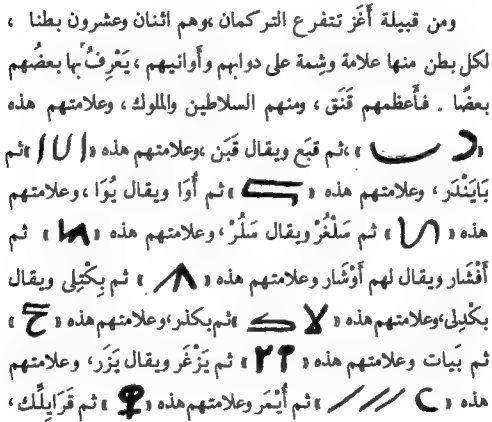 ومن قبيلة أغَز تتفرع التركمان ،وهم اثنان وعشرون بطنا ،
لكل بطن منها علامة وسِمة على دوابهم وأوانيهم ، يَعْرِفُ بها بعضُهم
بعضًا . فأعظمهم قَنَق ، ومنهم السلاطين والملوك ، وعلامتهم هذه
« » ، ثم قبَع ويقال قبَن ،وعلامتهم هذه « » ثم
بَايَنْدَر ، وعلامتهم هذه « » ثم أُوَا ويقال يُوَا ، وعلامتهم
هذه « » ثم سَلْغُرْ ويقال سَلُرْ ، وعلامتهم هذه « » ثم
أفْشَار ويقال لهم أوْشَار وعلامتهم هذه « » ثم بِكْتِلِى ويقال
بكدلى،وعلامتهم هذه « » ثم بكدز،وعلامتهم هذه « »
ثم بَيات وعلامتهم هذه « » ثم يَزْغَر ويقال يَزَر، وعلامتهم
هذه « » ثم أَيْمَر وعلامتهم هذه « » ثم قَرَابلَك ،